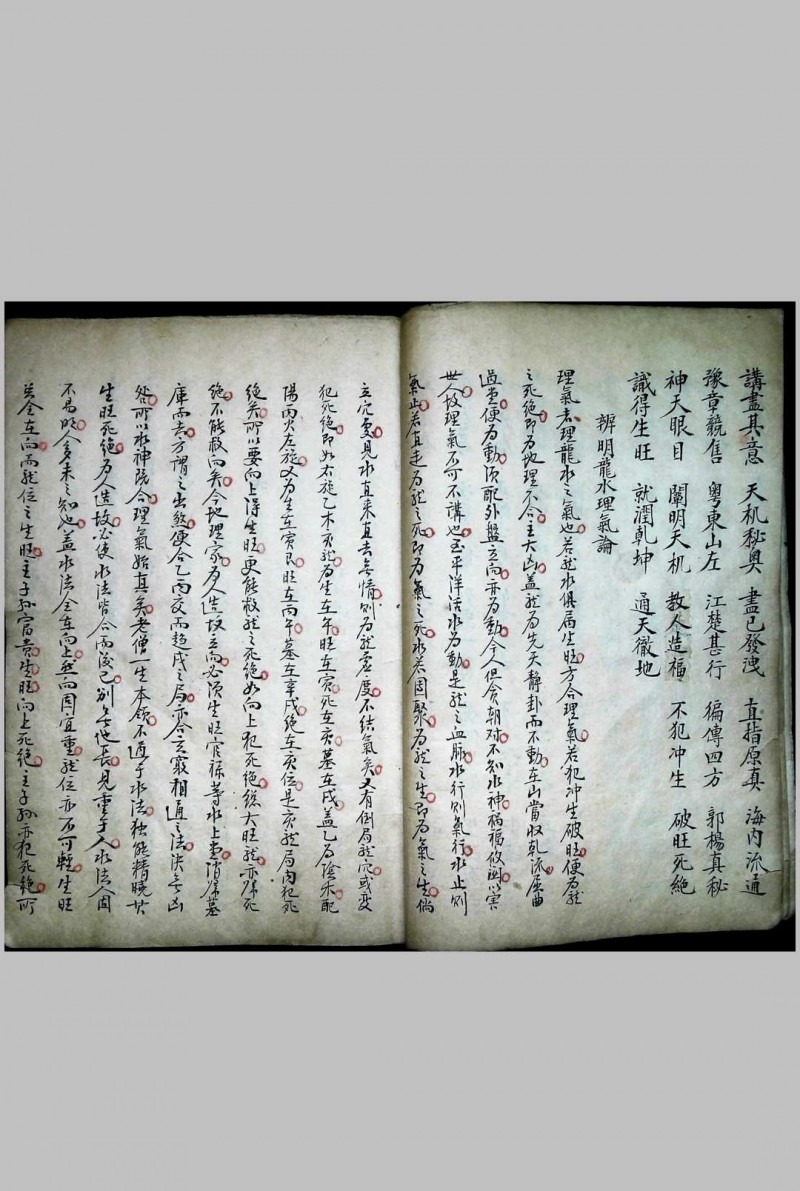 講盡其意 天机秘奥 盡已發洩 直指原真 海內流通
豫章競售 粵東山左 江楚甚行 徧傳四方 郭楊真秘
神天眼目 闡明天机 教人造福 不犯冲生 破旺死絕
識得生旺 就潤乾坤 通天徹地
辨明龍水理氣論
理氣者理龍水之氣也若龍水俱屬生旺方合理氣若犯冲生破旺便為龍
之死絕即為地理不合主大凶盖龍為先天靜卦而不動左山當收乳流屈曲
過堂便為動須配外盤立向亦為動今人但貪朝对不知水神禍福攸関以害
世人故理氣不可不講也至平洋法水為動是龍之血脉水行則氣行水止則
氣止若直走為龍之死即為氣之死水若囬聚為龍之生即為氣之生倘
立穴處見水直来直去無情則為龍虛度不结氣矣又有倒局龍穴或变
犯死絕即如右旋乙木亥龍為生在午旺在寅死在亥墓在戌盖乙為陰木配
陽丙火左旋又為生在寅艮旺在丙午墓在辛戌絕在亥位是亥龍局内犯死
絕矣所以要向上得生旺更能救龍之死絕如向上犯死絕縱大旺龍亦属死
絕不能救向矣今地理家為人造坟立向必須生旺官祿等水上堂消歸墓
庫而去方謂之出煞便合乙丙交而趋戌之局亦合玄竅相通之法决無凶
咎所以水神既合理氣始真矣老僧一生本領不過于水法独能精曉其
生旺死絕為人造坟必使水法皆合而後已别無他長見重于人水法人固
不易明人多未之知也盖水法全在向上然向固宜重龍位亦不可輕生旺
若全在向而龍位之生旺主子孙富貴生旺向上死絕主子孙亦犯死絕所